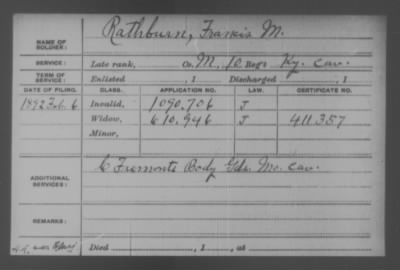 NAME OF SOLDIER: Rathburn, Francis M.
SERVICE: Late rank, Co. M, 10 Reg't Ky. Cav.
TERM OF SERVICE: Enlisted , 1 Discharged , 1
DATE OF FILING. CLASS. APPLICATION NO. LAW. CERTIFICATE NO.
1892 Feb. 6 Invalid, 1090.706 J
Widow, 610.946 J 411.357
Minor,
ADDITIONAL SERVICES: C Fremonts Body Gds. Mo. Cav.
REMARKS:
Died , 1 , at